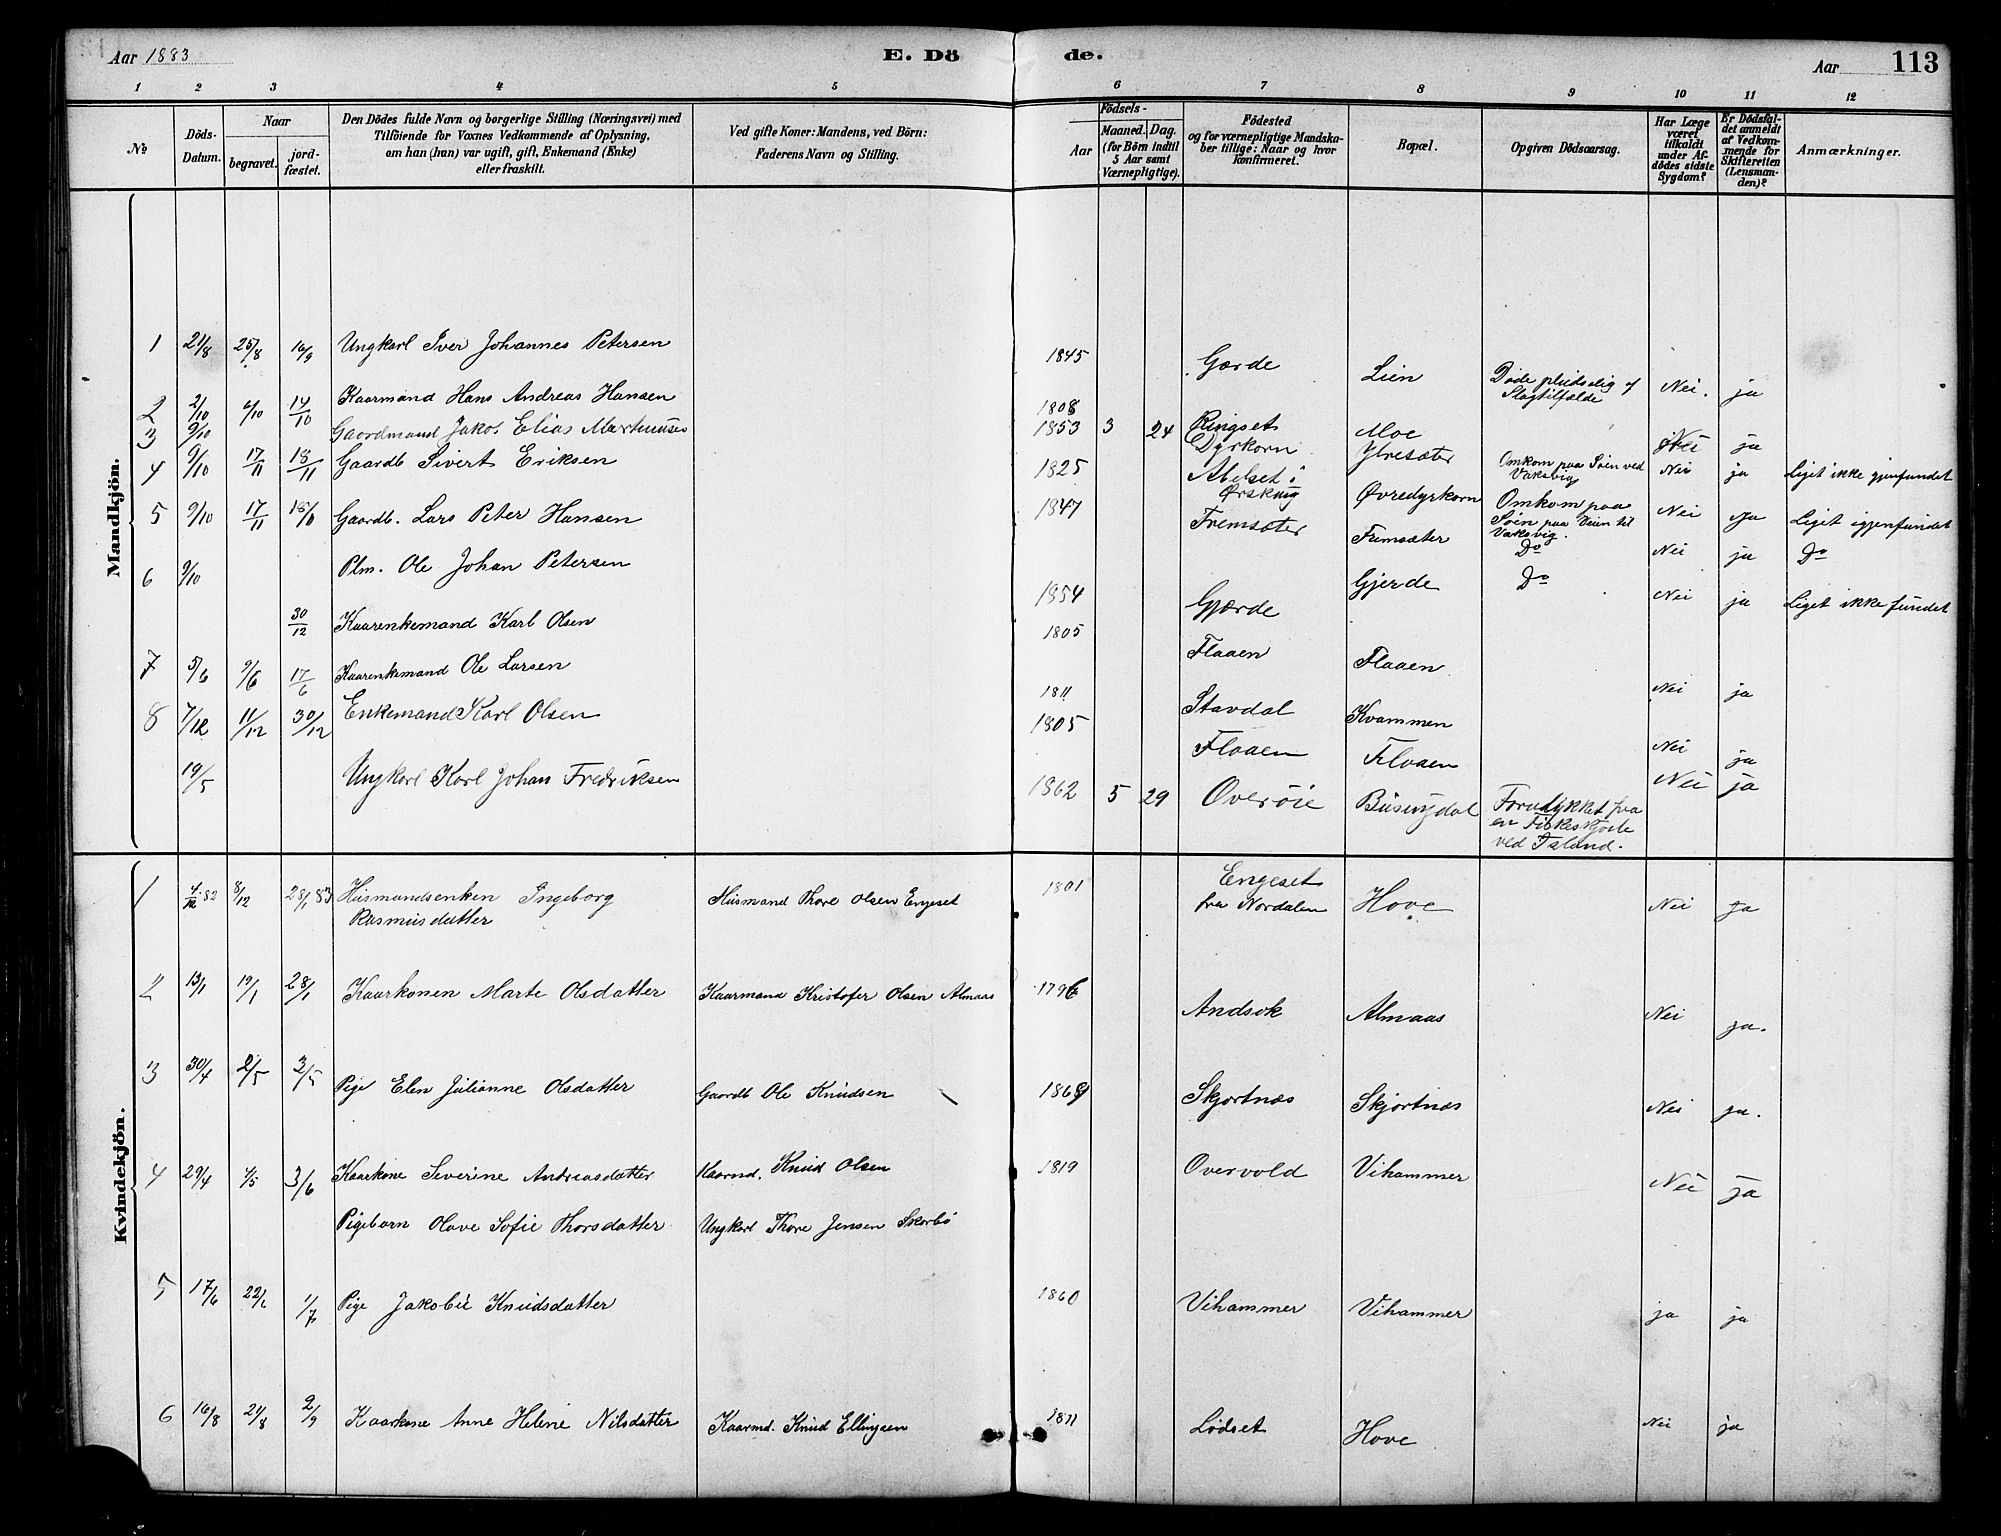 Aar 1883
E. Dö
de.
Aar
113
1 2 3 4 5 6 7 8 9 10 11 12
№
Döds-Datum.
Naar
begravet.
jord-fæstet.
Den Dödes fulde Navn og borgerlige Stilling (Næringsvei) med
Tilföiende for Voxnes Vedkommende af Oplysning,
om han (hun) var ugift, gift, Enkemand (Enke)
eller fraskilt.
Ved gifte Koner: Mandens, ved Börn:
Faderens Navn og Stilling.
Födsels-
Aar
Maaned. Dag.
(for Börn indtil
5 Aar samt
Værnepligtige).
Födested
og for værnepligtige Mandska-
ber tillige: Naar og hvor
konfirmeret.
Bopæl.
Opgiven Dödsaarsag.
Har Læge
været
tilkaldt
under Af-
dödes sidste
Sygdom?
Er Dödsfal-
det anmeldt
af Vedkom-
mende for
Skifteretten
(Lensman-
den)?
Anmærkninger.
Mandkjön.
1 21/8 25/8 16/9 Ungkarl Iver Johannes Petersen 1845 Gærde Lien Døde pludselig af Slagtilfælde Nei. ja
2 2/10 6/10 14/10 Kaarmand Hans Andreas Hansen 1808 Ringset Moe Nei ja
3 9/10 Gaardmand Jakob Elias Marthinusen 1853 3 24 Dyrkorn Ytresæter Omkom paa Søen ved Vaksvig Nei ja Liget ikke gjenfundet
4 9/10 17/11 18/11 Gaardb Sivert Eriksen 1825 Abelset i Ørskog Øvredyrkorn Omkom paa Søen paa Veien til Vaksvig. Nei Ja Liget igjenfundet
5 9/10 17/11 18/11 Gaardb. Lars Peter Hansen 1847 Fremsæter Fremsæter Do Nei ja Do
6 9/10 Plm. Ole Johan Petersen 1854 Gjærde Gjerde Do Nei ja Liget ikke fundet
30/12 Kaarenkemand Karl Olsen 1805 Flaaen Flaaen
7 5/6 9/6 17/6 Kaarenkemand Ole Larsen 1811 Stavdal Kvammen Nei ja
8 7/12 11/12 30/12 Enkemand Karl Olsen 1805 Flaaen Flaaen Nei ja
19/5 Ungkarl Karl Johan Fredriksen 1862 5 29 Overøie Busengdal Forulykket fra en Fiskeskøite ved Island. Nei ja
Kvindekjön.
1 4/12 82 8/12 28/1 83 Husmandsenken Ingeborg Rasmusdatter Husmand Thore Olsen Engeset 1801 Engeset fra Nordalen Hove Nei Ja
2 13/1 19/1 28/1 Kaarkonen Marte Olsdatter Kaarmand Kristofer Olsen Almaas 1796 Andsok Almaas Nei ja.
3 30/4 2/5 3/5 Pige Elen Julianne Olsdatter Gaardb Ole Knudsen 1869 Skjortnæs Skjortnæs Nei ja.
4 29/4 4/5 3/6 Kaarkone Severine Andreasdatter Kaarmd. Knud Olsen 1819 Overvold Vihammer Nei ja
Pigebarn Olave Sofie Thorsdatter Ungkarl Thore Jensen Skorbø
5 17/6 22/6 1/7 Pige Jakobie Knudsdatter 1860 Vihammer Vihammer ja ja
6 16/8 21/8 2/9 Kaarkone Anne Heline Nilsdatter Kaarmd. Knud Ellingsen 1811 Lødset Hove Nei ja